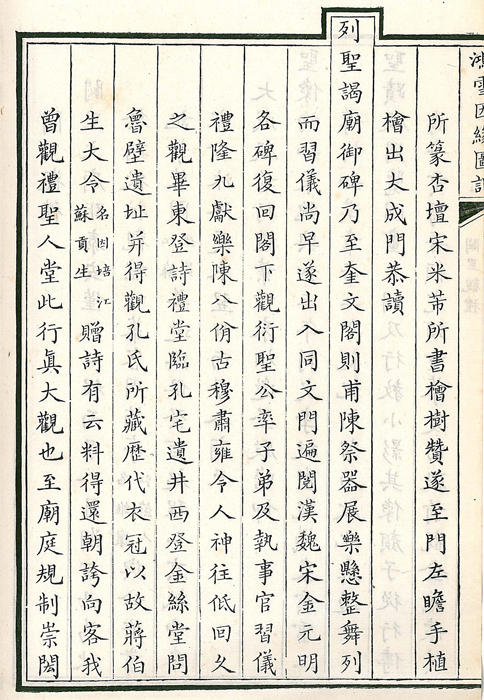 鴻雪因緣圖記
所篆杏壇宋米芾所書檜樹贊遂至門左瞻手植
檜出大成門恭讀
列聖謁廟御碑乃至奎文閣則甫陳祭器展樂懸整舞列
而習儀尚早遂出入同文門遍閱漢魏宋金元明
各碑復回閣下觀衍聖公率子弟及執事官習儀
禮隆九獻樂陳八佾古穆肅雍令人神往低回久
之觀畢東登詩禮堂臨孔宅遺井西登金絲堂問
魯壁遺址并得觀孔氏所藏歷代衣冠以故蔣伯
生大令名因培江蘇貢生贈詩有云料得還朝誇向客我
曾觀禮聖人堂此行眞大觀也至廟庭規制崇閎